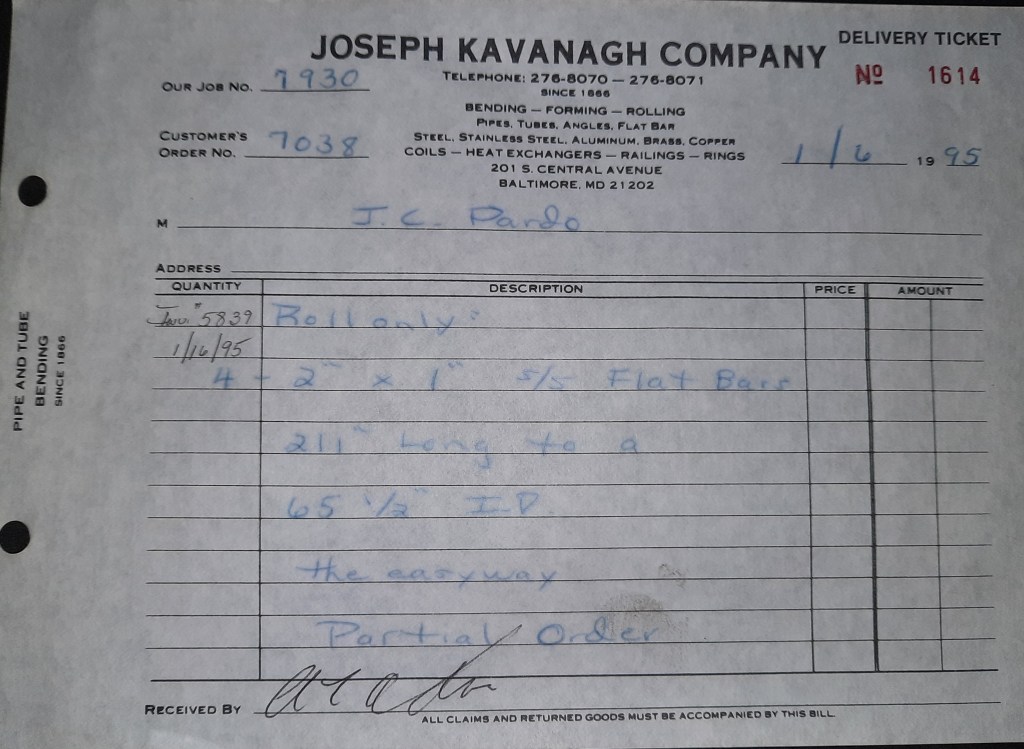 JOSEPH KAVANAGH COMPANY
DELIVERY TICKET
Nº 1614
TELEPHONE: 276-8070 — 276-8071
SINCE 1866
OUR JOB NO. 7930
BENDING — FORMING — ROLLING
PIPES, TUBES, ANGLES, FLAT BAR
STEEL, STAINLESS STEEL, ALUMINUM, BRASS, COPPER
CUSTOMER'S
ORDER NO. 7038
COILS — HEAT EXCHANGERS — RAILINGS — RINGS
1/6 1995
201 S. CENTRAL AVENUE
BALTIMORE, MD 21202
M J.C. Pardo
ADDRESS
QUANTITY DESCRIPTION PRICE AMOUNT
Inv. # 5839 Roll only:
1/16/95
4 - 2" x 1" s/s Flat Bars
211" Long to a
65 1/2" I.D.
the easyway
Partial Order
RECEIVED BY
ALL CLAIMS AND RETURNED GOODS MUST BE ACCOMPANIED BY THIS BILL
PIPE AND TUBE
BENDING
SINCE 1866